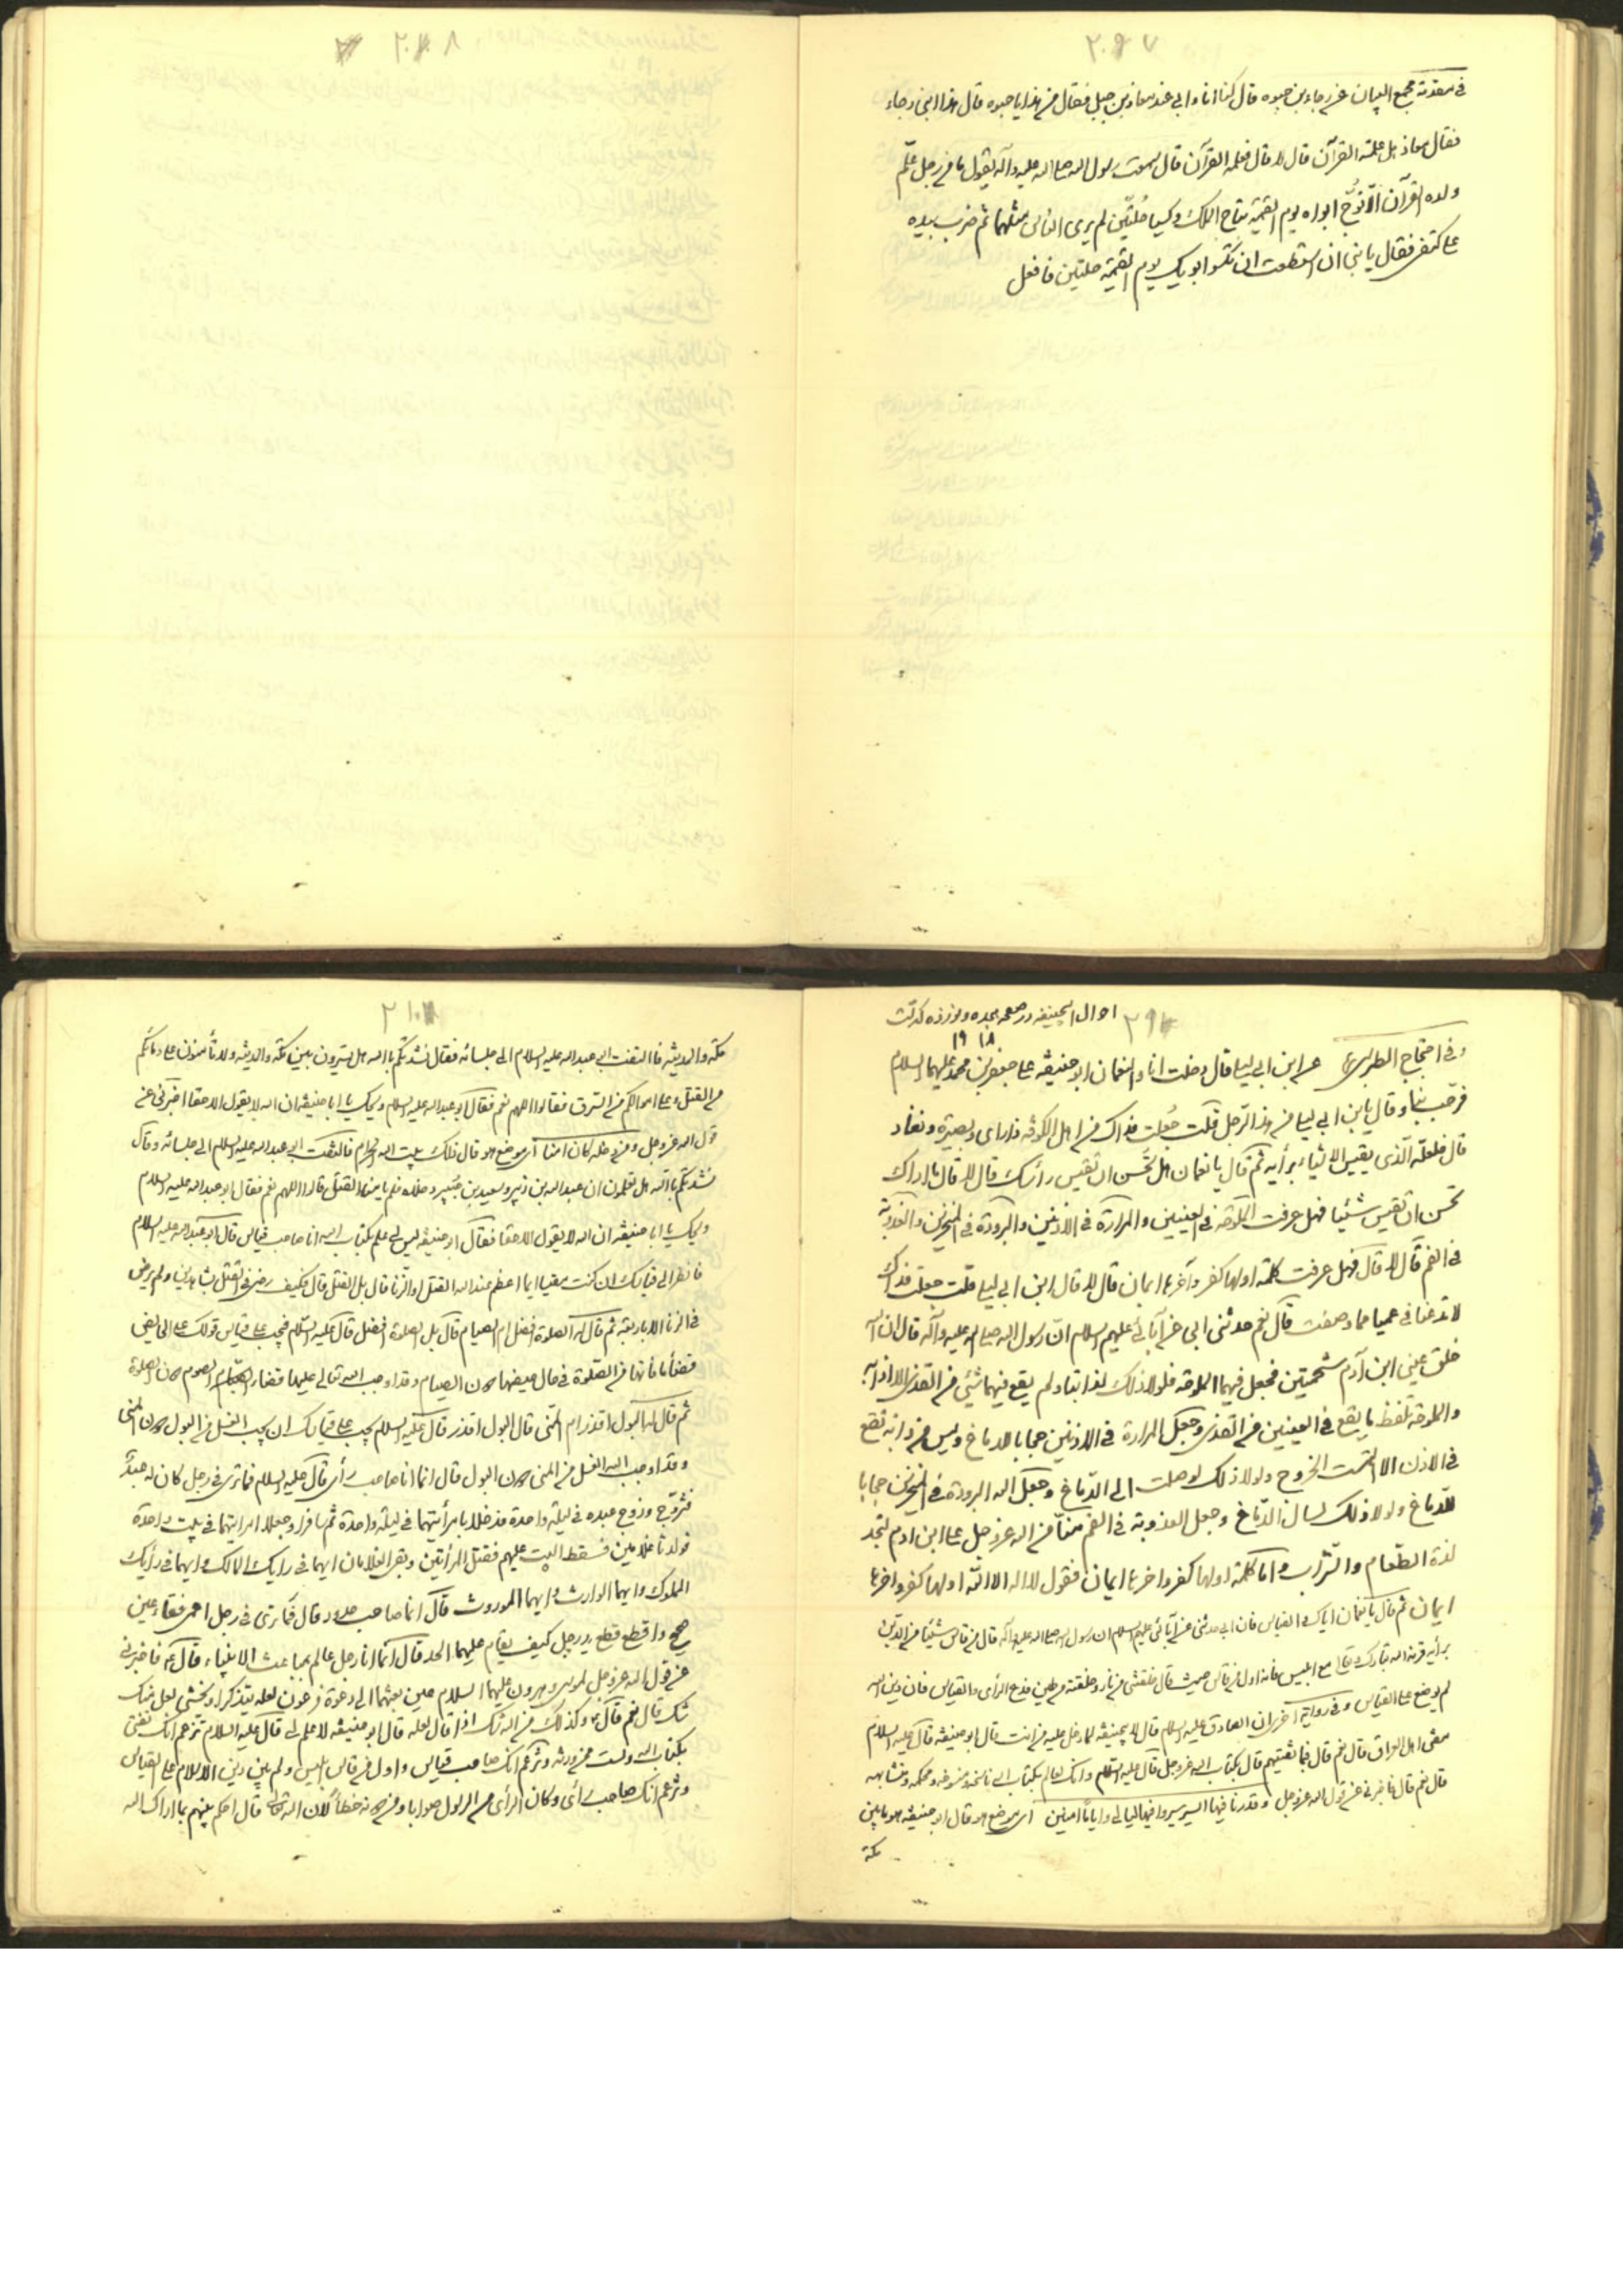 ٢٠٩٧
في مقدمة مجمع البيان عن رجاء بن حيوه قال كنا انا و ابي عند معاذ بن جبل فقال من هذا يا حيوه قال هذا ابني رجاء
فقال معاذ هل علمته القرآن قال لا قال فعلمه القرآن قال سمعت رسول الله صلى الله عليه وآله يقول ما من رجل علّم
ولده القرآن الّا تُوّج ابواه يوم القيمة بتاج الملك و كسيا حُلّتين لم يرى الناس مثلهما ثم ضرب بيده
على كتفى فقال يا بني ان استطعت ان تكسو ابويك يوم القيمة حلتين فافعل
احوال ابيحنيفه در صفحه بعده و نوزده گذشت
١٨ ١٩
و في احتجاج الطبرسي عن ابن ابي ليلى قال دخلت انا و النعمان ابو حنيفه على جعفر بن محمد عليهما السلام
فرحّب بنا و قال يابن ابي ليلى من هذا الرّجل قلت جُعلت فداك من اهل الكوفه ذا راى و بصيرة و نفاد
قال فلعلّه الّذى يقيس الاشياء برأيه ثم قال يا نعمان هل تحسن ان تقيس رأسك قال لا قال ما اراك
تحسن ان تقيس شيئا فهل عرفت الملوحة في العينين و المرارة في الاذنين و البرودة في المنخرين و العذوبة
في الفم قال لا قال فهل عرفت كلمة اولها كفر و آخرها ايمان قال لا قال ابن ابي ليلى قلت جعلت فداك
لا تدعنا في عميا مما وصفت قال نعم حدثني ابي عن آبائه عليهم السلام انّ رسول الله صلى الله عليه وآله قال ان الله
خلق عيني ابن آدم شحمتين فجعل فيهما الملوحة فلولا ذلك لذابتا و لم يقع فيهما شئ من القذى الا اذابه
والملوحة تلفظ ما يقع في العينين من القذى و جعل المرارة في الاذنين حجابا للدماغ و ليس من دابه تقع
في الاذن الا التمست الخروج و لولا ذلك لوصلت الى الدّماغ و جعل الله البرودة في المنخرين حجابا
للدّماغ و لولا ذلك لسال الدّماغ و جعل العذوبة في الفم منّاً من الله عز و جل على ابن ادم لتجد
لذة الطّعام و الشّراب و اما كلمة اولها كفر و اخرها ايمان فقول لا اله الا الله اولها كفر و اخرها
ايمان ثم قال يا نعمان اياك و القياس فان ابي حدثني عن آبائه عليهم السلام ان رسول الله صلى الله عليه وآله قال من قاس شيئا من الدّين
برأيه قرنه الله تبارك و تعالى مع ابليس فانه اول من قاس حيث قال خلقتني من نار و خلقته من طين فدع الرأى و القياس فان دين الله
لم يوضع على القياس و في رواية اخرى ان الصادق عليه السلام قال لابيحنيفه لما دخل عليه من انت قال ابو حنيفه قال عليه السلام
مفتى اهل العراق قال نعم قال بما تفتيهم قال بكتاب الله عز و جل قال عليه السلام و انك لعالم بكتاب الله ناسخه و منسوخه و محكمه و متشابهه
قال نعم قال فاخبرني عن قول الله عز و جل و قدرنا فيها السير سيروا فيها ليالي و اياما امنين اى موضع هو قال ابو حنيفه هو ما بين
مكة
مكة و المدينة فالتفت ابو عبد الله عليه السلام الى جلسائه فقال نشدتكم بالله هل تسيرون بين مكة و المدينة و لا تأمنون على دمائكم
من القتل و على اموالكم من السرق فقالوا اللهم نعم فقال ابو عبد الله عليه السلام ويحك يا ابا حنيفه ان الله لا يقول الا حقا اخبرني عن
قول الله عز و جل و من دخله كان امنا اى موضع هو قال ذلك بيت الله الحرام فالتفت ابو عبد الله عليه السلام الى جلسائه و قال
نشدتكم بالله هل تعلمون ان عبد الله بن زبير و سعيد بن جبير دخلاه فلم يأمنا القتل قالوا اللهم نعم فقال ابو عبد الله عليه السلام
ويحك يا ابا حنيفه ان الله لا يقول الا حقا فقال ابو حنيفه ليس لي علم بكتاب الله انا صاحب قياس قال ابو عبد الله عليه السلام
فانظر الى قياسك ان كنت مقيسا ايما اعظم عند الله القتل او الزنا قال بل القتل قال فكيف رضى في القتل بشاهدين و لم يرض
في الزنا الا باربعة ثم قال له الصلوة افضل ام الصيام قال بل الصلوة افضل قال عليه السلام فيجب على قياس قولك على الحايض
قضاء ما فاتها من الصلوة في حال حيضها دون الصيام و قد اوجب الله تعالى عليها قضاء الصوم دون الصلوة
ثم قال له البول اقذر ام المنى قال البول اقذر قال عليه السلام يجب على قياسك ان يجب الغسل من البول دون المنى
و قد اوجب الله الغسل من المنى دون البول قال انما انا صاحب رأى قال عليه السلام فما ترى في رجل كان له عبدٌ
فتزوّج و زوج عبده في ليلة واحدة فدخلا بامرأتيهما في ليلة واحدة ثم سافرا و جعلا امرأتيهما في بيت واحدة
فولدتا غلامين فسقط البيت عليهم فقتل المرأتين و بقى الغلامان ايهما في رايك المالك و ايهما في رأيك
المملوك و ايهما الوارث و ايهما الموروث قال انما صاحب حدود قال فما ترى في رجل اعمى فقاء عين
صحيح و اقطع قطع يد رجل كيف يقام عليهما الحد قال انما انا رجل عالم بمباعث الانبياء قال فاخبرني
عن قول الله عز و جل لموسى و هرون عليهما السلام حين بعثهما الى دعوة فرعون لعله يتذكر او يخشى لعل منك
شك قال نعم قال و كذلك من الله شك اذا قال لعله قال ابو حنيفه لا علم لي قال عليه السلام تزعم انك تفتى
بكتاب الله و لست ممن ورثه و تزعم انك صاحب قياس و اول من قاس ابليس و لم يبن دين الاسلام على القياس
و تزعم انك صاحب رأى و كان الرأى من الرسول صوابا و من دونه خطأً لان الله تعالى قال احكم بينهم بما اراك الله